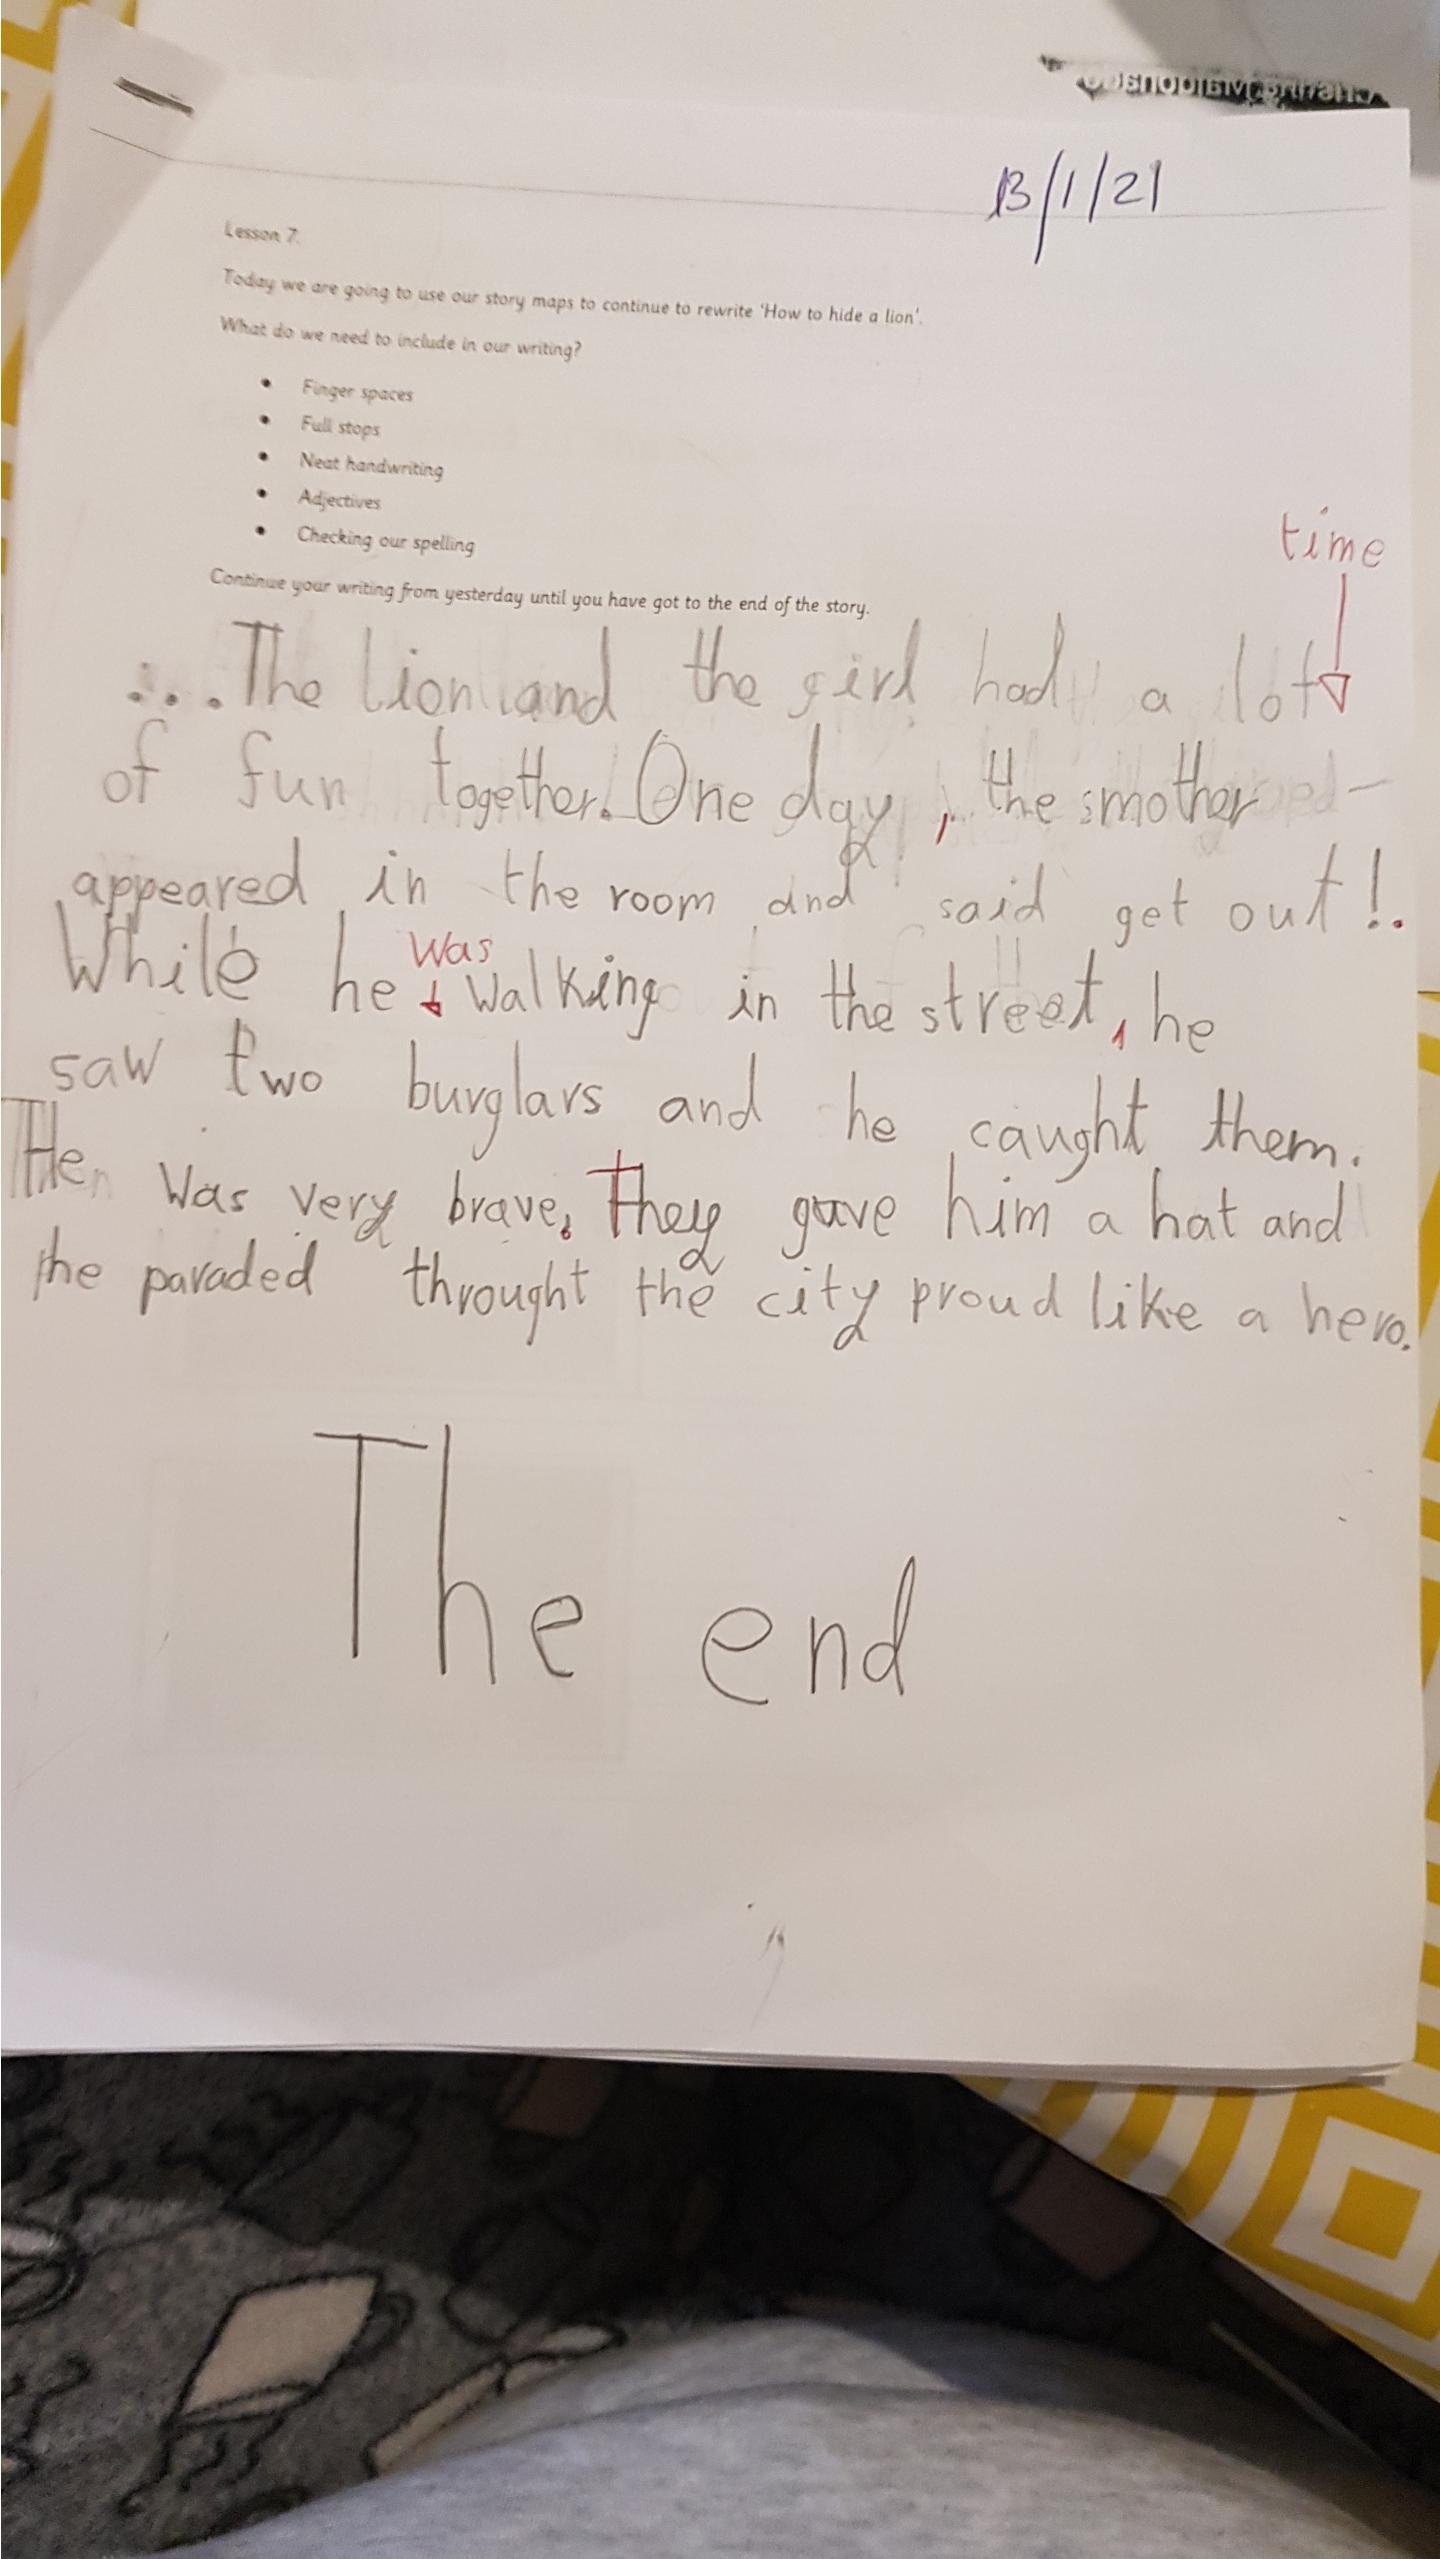 13/1/21
Lesson 7.
Today we are going to use our story maps to continue to rewrite 'How to hide a lion'.
What do we need to include in our writing?
• Finger spaces
• Full stops
• Neat handwriting
• Adjectives
• Checking our spelling
time
Continue your writing from yesterday until you have got to the end of the story.
...The lion and the girl had a lot
of fun together. One day, the mother
appeared in the room and said get out!.
was
While he walking in the street, he
saw two burglars and he caught them.
He was very brave. They gave him a hat and
he paraded throught the city proud like a hero.
The end